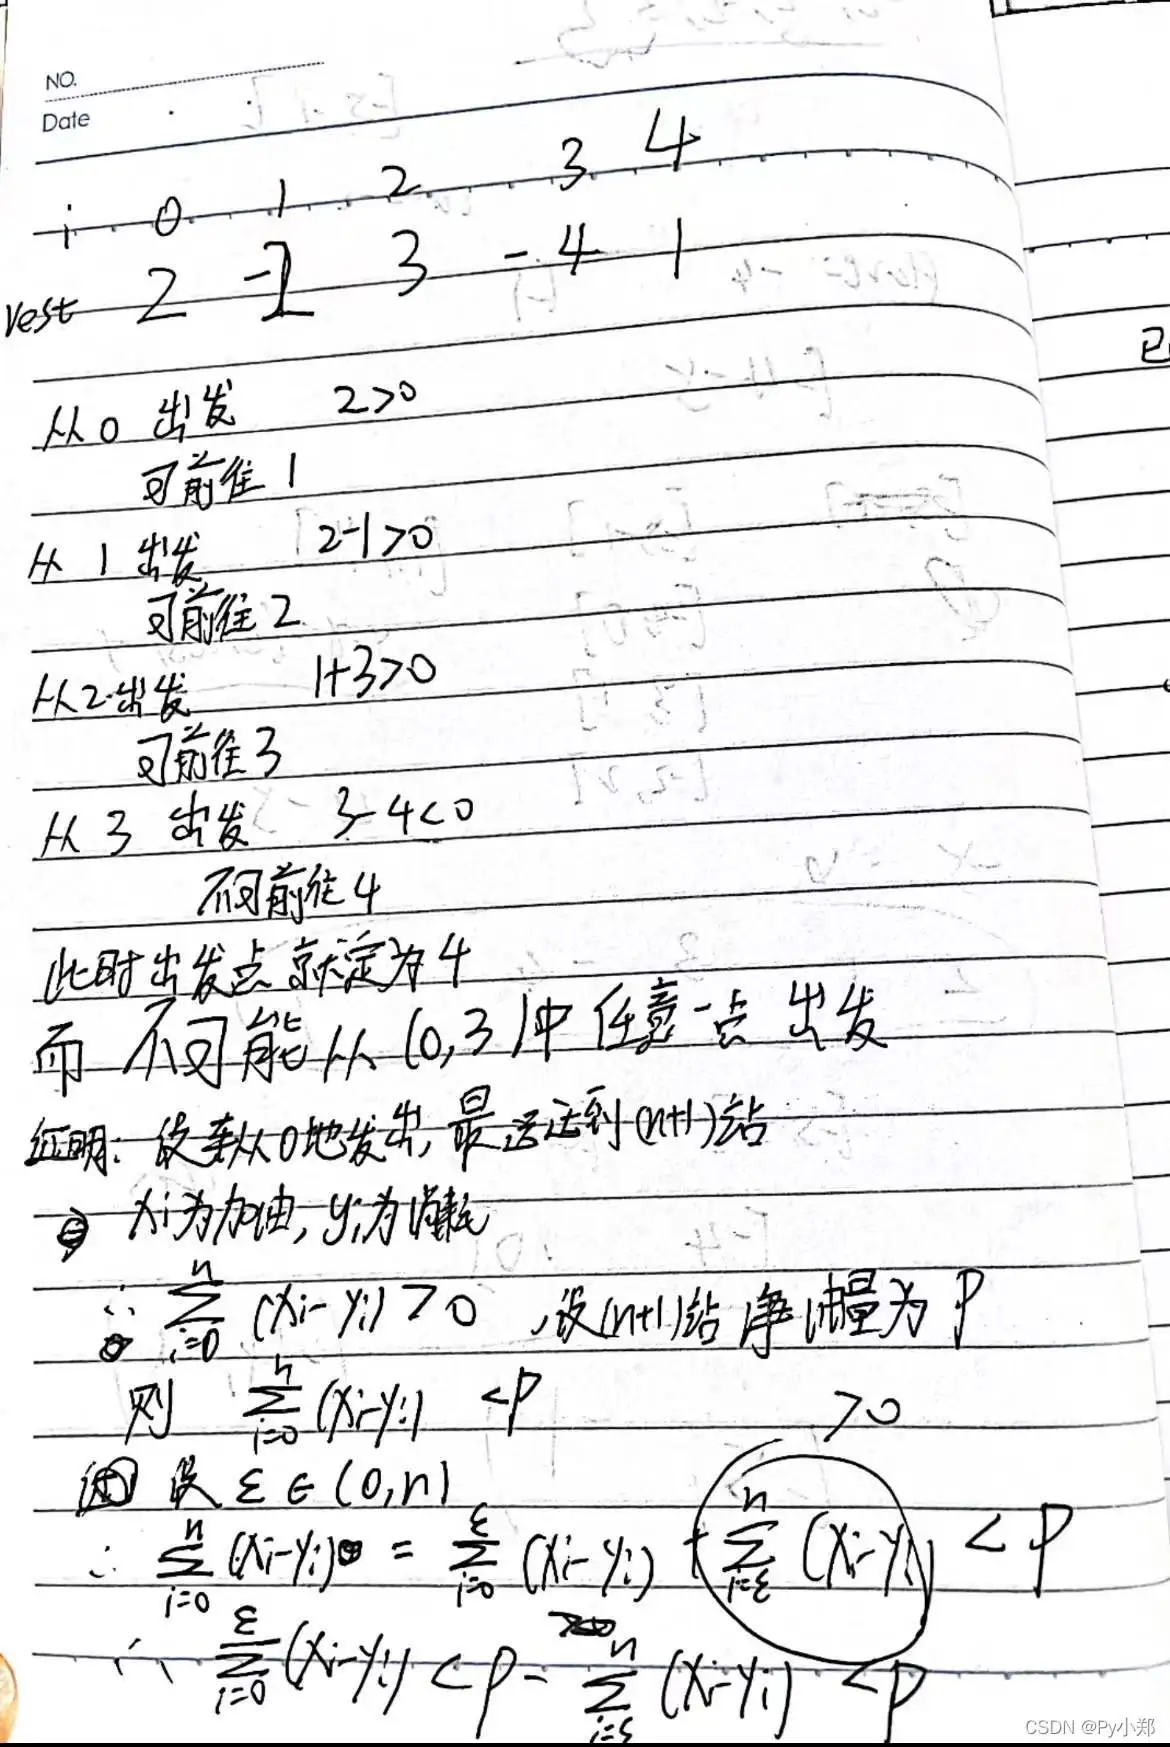 NO.
Date
i 0 1 2 3 4
rest 2 -1 3 -4 1
从0 出发 2>0
可前往1
从 1 出发 2-1>0
可前往2
从2出发 1+3>0
可前往3
从 3 出发 3-4<0
不可前往4
此时出发点就定为4
而不可能从(0,3)中任意一点出发
证明:设车从0地发出,最远达到(n+1)站
xi为加油,yi为消耗
∴ ∑_{i=0}^{n} (xi-yi) >0 ,设(n+1)站净油量为P
则 ∑_{i=0}^{n} (xi-yi) <P
>0
设 ε∈(0,n)
∴ ∑_{i=0}^{n} (xi-yi) = ∑_{i=0}^{ε} (xi-yi) + ∑_{i=ε}^{n} (xi-yi) <P
∴ ∑_{i=0}^{ε} (xi-yi) < P - ∑_{i=ε}^{n} (xi-yi) <P
CSDN @Py小郑